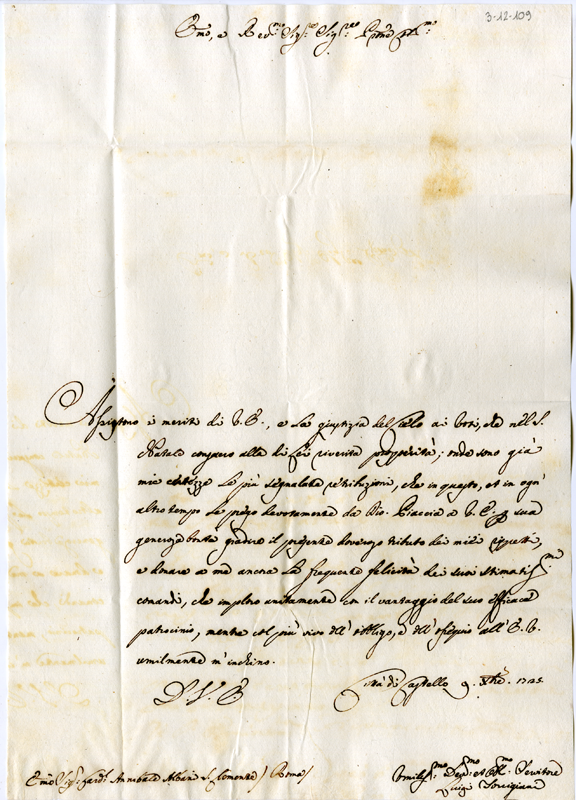 3-12-109
Emo, e Revmo Sigre Sigre Prone Colmo
Assistono i meriti di V. E., e la giustizia del Cielo ai voti, che nel S.
Natale consacro alla di Lei riverita prosperità; onde sono già
mie certezze le più segnalate retribuzioni, che in questo, et in ogn'
altro tempo Le prego devotamente da Dio. Piaccia a V. E. p sua
generosa bontà gradire il presente doveroso tributo dei miei rispetti,
e donare a me ancora la frequente felicità dei suoi stimatissmi
comandi, che imploro unitamente con il vantaggio del suo efficace
patrocinio, mentre col più vivo dell' obbligo, e dell' ossequio all' E. V.
umilmente m' inchino.
D. V. E
Città di Castello 9. Xbre. 1725.
Emo Sigr Card. Annibale Albani S. Clemente / Roma /
Umilissmo Devmo et Obbmo Servitore
Luigi